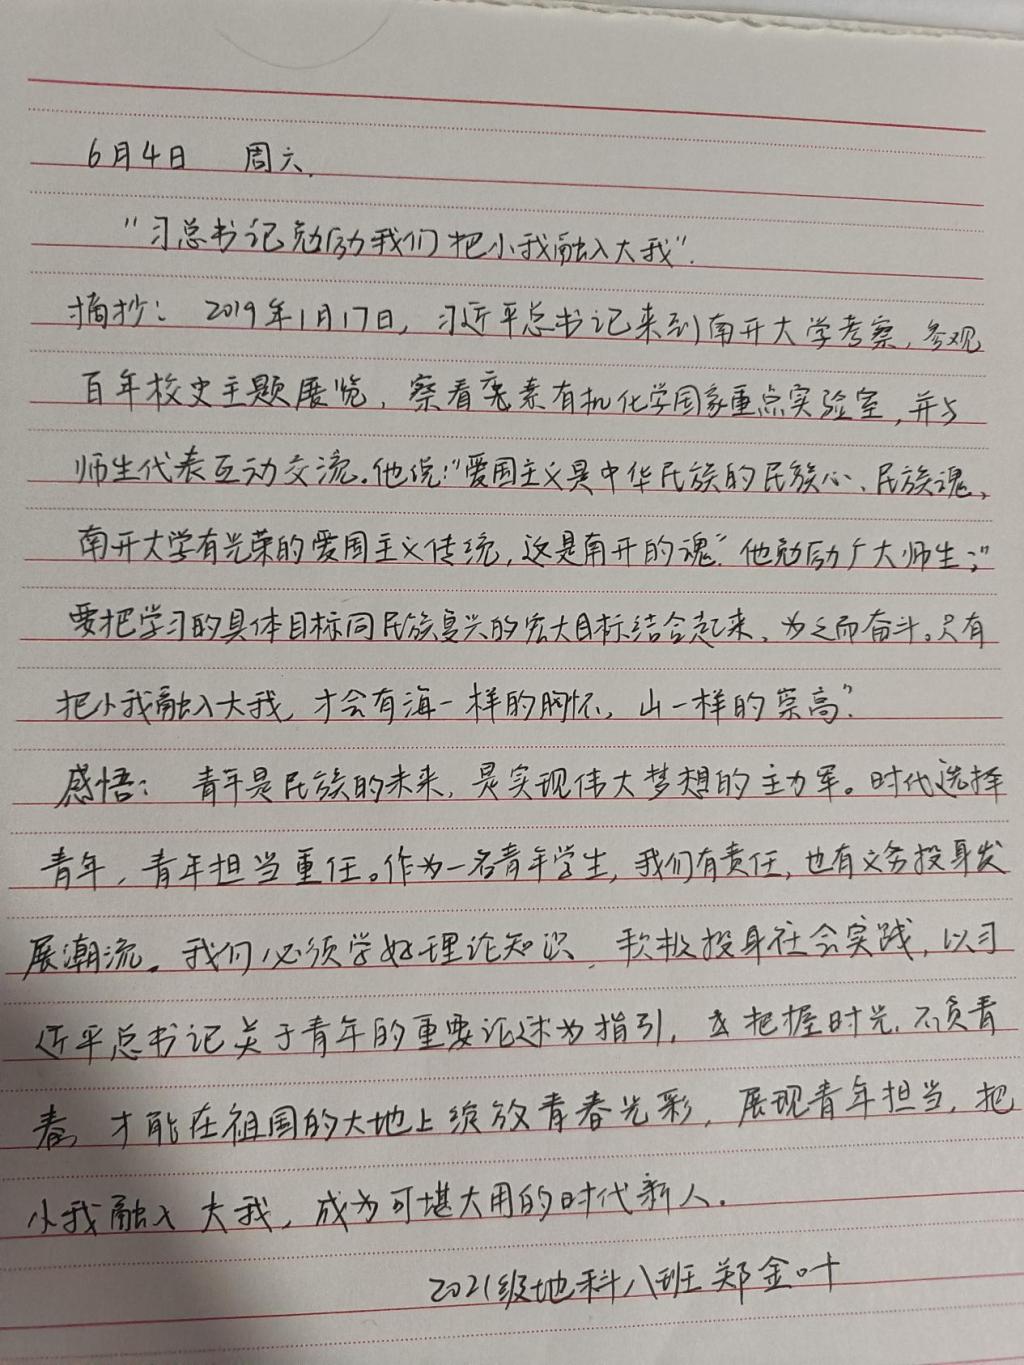 6月4日 周六.
“习总书记勉励我们把小我融入大我”.
摘抄： 2019年1月17日，习近平总书记来到南开大学考察，参观
百年校史主题展览，察看元素有机化学国家重点实验室，并与
师生代表互动交流。他说：“爱国主义是中华民族的民族心、民族魂，
南开大学有光荣的爱国主义传统，这是南开的魂”他勉励广大师生：“
要把学习的具体目标同民族复兴的宏大目标结合起来、为之而奋斗。只有
把小我融入大我，才会有海一样的胸怀，山一样的崇高”.
感悟： 青年是民族的未来，是实现伟大梦想的主力军。时代选择
青年，青年担当重任。作为一名青年学生，我们有责任，也有义务投身发
展潮流。我们必须学好理论知识，积极投身社会实践，以习
近平总书记关于青年的重要论述为指引，去把握时光，不负青
春，才能在祖国的大地上绽放青春光彩，展现青年担当，把
小我融入大我，成为可堪大用的时代新人.
2021级地科八班 郑金叶